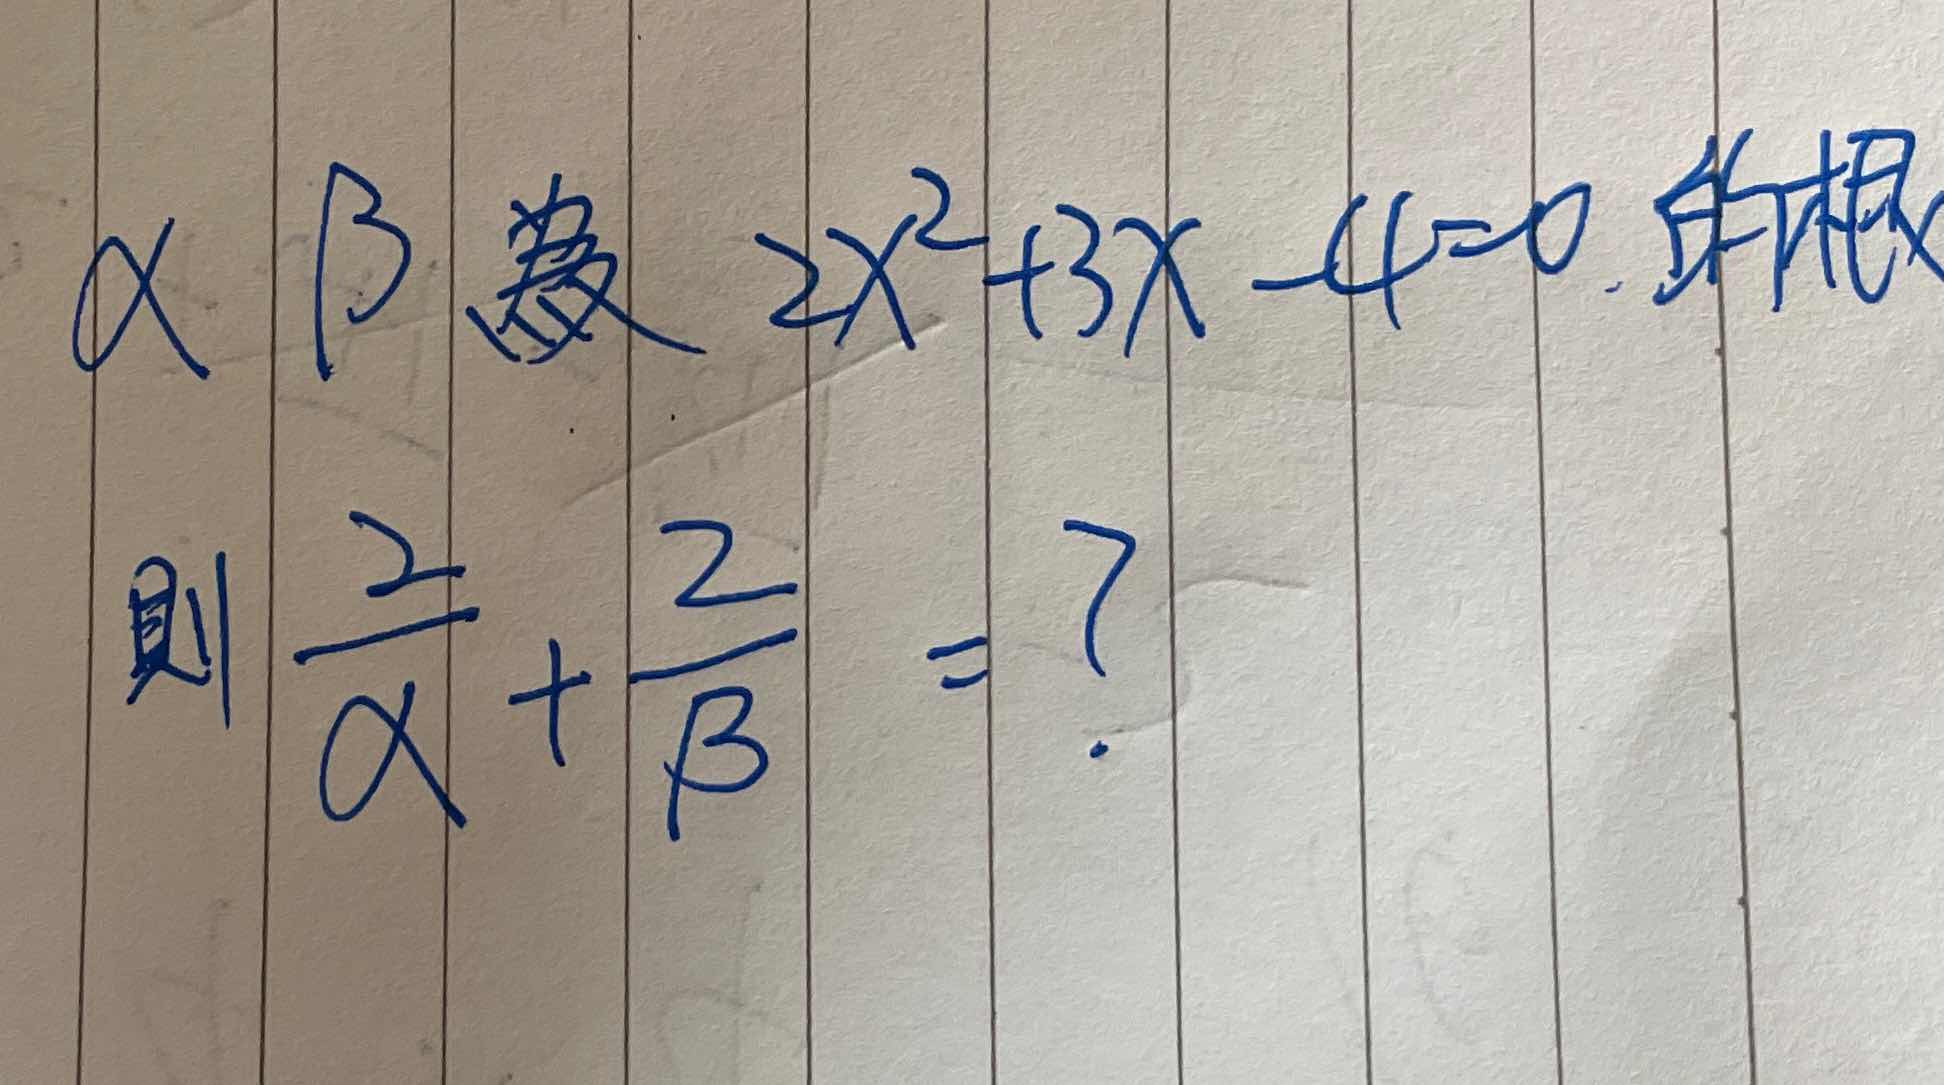 α β為 2x²+3x-4=0.的根
則 2/α + 2/β = ?